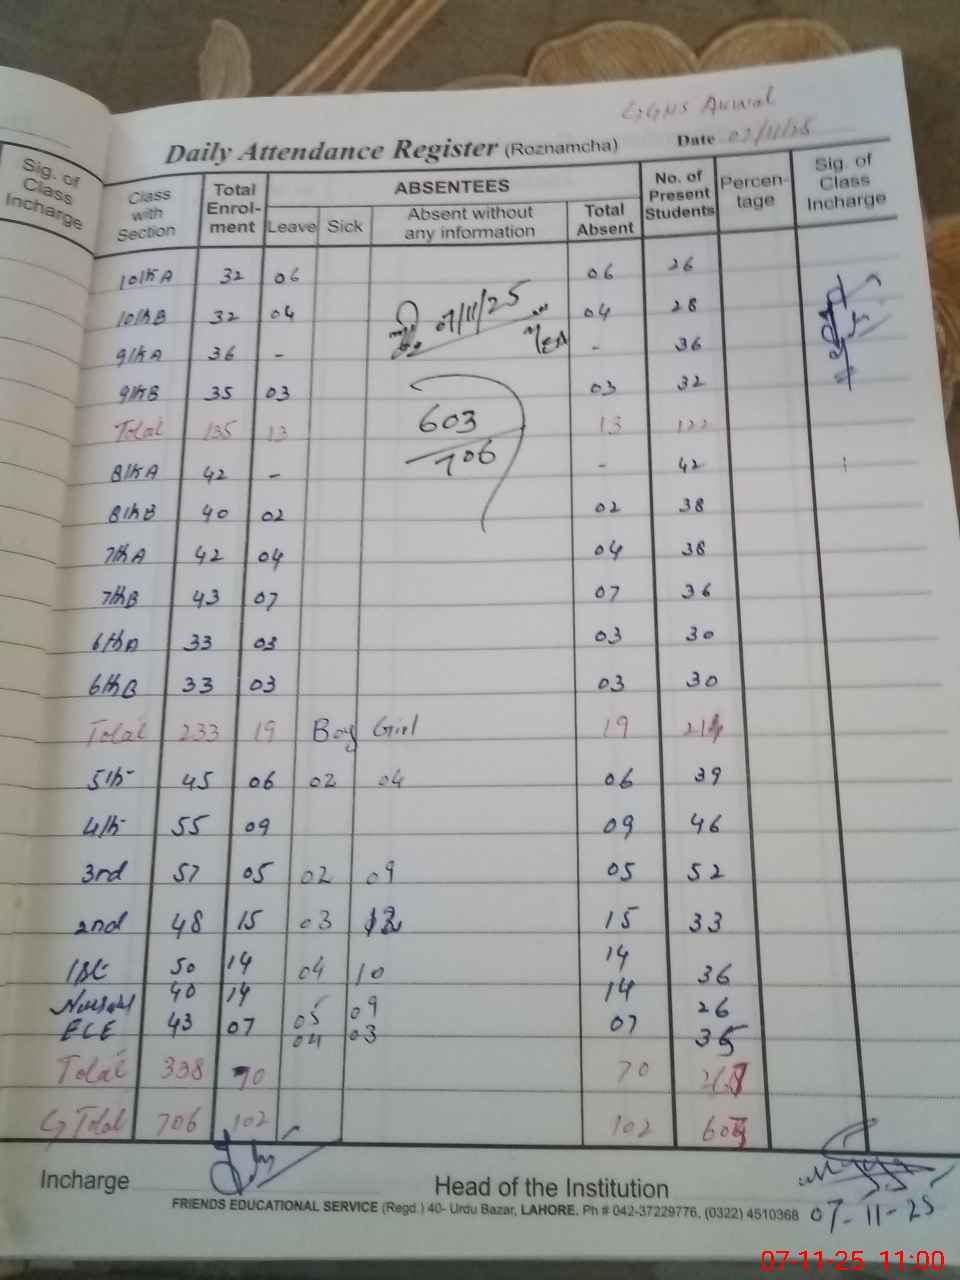 GGHS Auwal
Daily Attendance Register (Roznamcha) Date 07/11/25
Sig. of Class Incharge
Class with Section Total Enrol-ment ABSENTEES Leave Sick Absent without any information Total Absent No. of Present Students Percen-tage Sig. of Class Incharge
10th A 32 06 06 26
10th B 32 04 07/11/25 04 28
9th A 36 - MEA - 36
9th B 35 03 03 32
603
Total 135 13 13 122
706
8th A 42 - - 42
8th B 40 02 02 38
7th A 42 04 04 38
7th B 43 07 07 36
6th A 33 03 03 30
6th B 33 03 03 30
Total 233 19 Boy Girl 19 214
5th 45 06 02 04 06 39
4th 55 09 09 46
3rd 57 05 02 09 05 52
2nd 48 15 03 12 15 33
1st 50 14 04 10 14 36
Nursary 40 14 05 09 14 26
ECE 43 07 04 03 07 36
Total 338 70 70 267
G Total 706 102 102 603
Incharge Head of the Institution
FRIENDS EDUCATIONAL SERVICE (Regd.) 40- Urdu Bazar, LAHORE. Ph # 042-37229776, (0322) 4510368
07-11-25
07-11-25 11:00